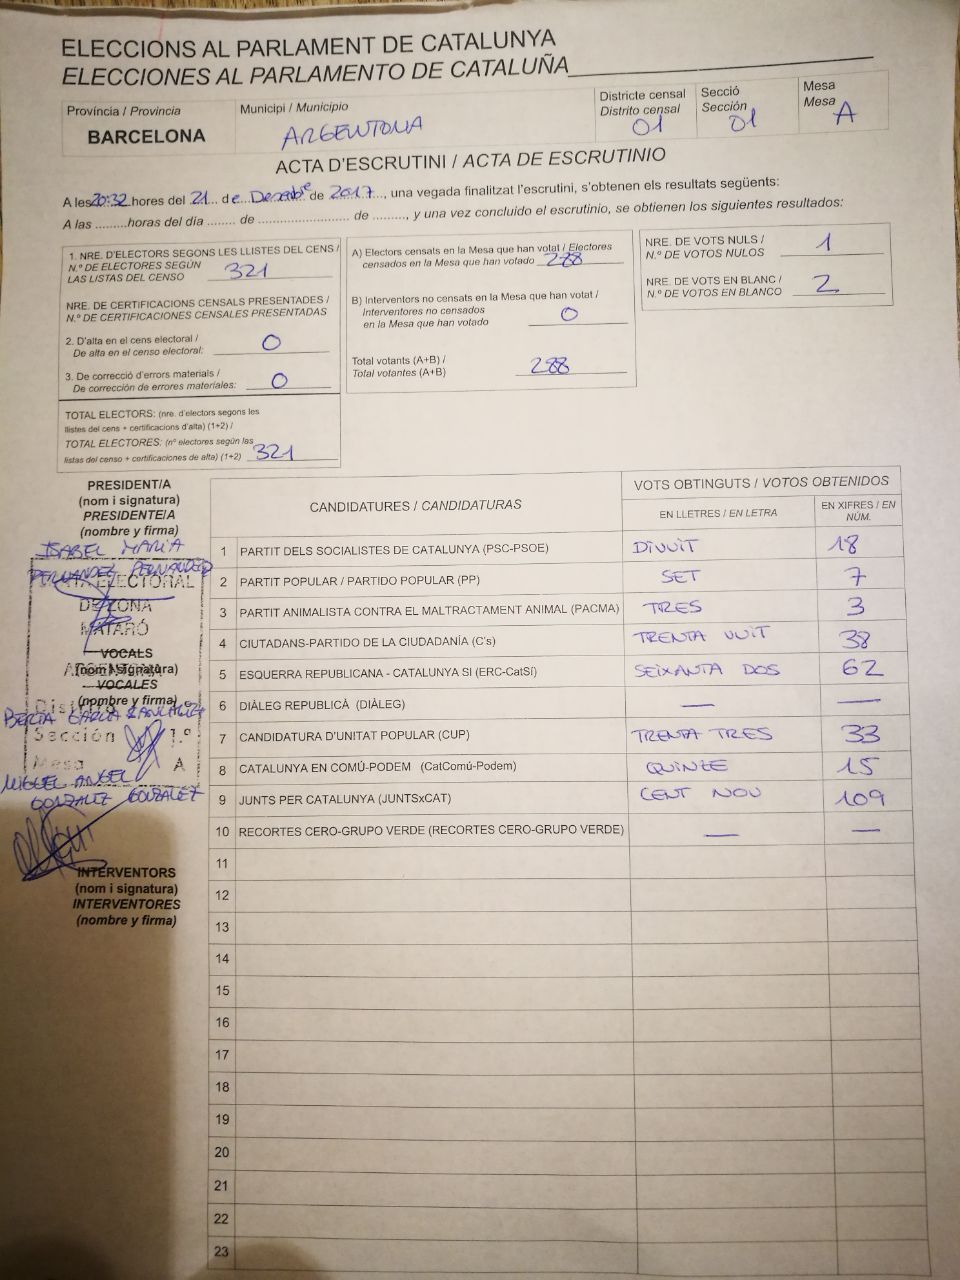 ELECCIONS AL PARLAMENT DE CATALUNYA
ELECCIONES AL PARLAMENTO DE CATALUÑA
Província / Provincia
BARCELONA
Municipi / Municipio
ARGENTONA
Districte censal
Distrito censal
01
Secció
Sección
01
Mesa
Mesa
A
ACTA D'ESCRUTINI / ACTA DE ESCRUTINIO
A les 20:32 hores del 21 de Desembre de 2017, una vegada finalitzat l'escrutini, s'obtenen els resultats següents:
A las .........horas del día ........ de .......................... de ........., y una vez concluido el escrutinio, se obtienen los siguientes resultados:
1. NRE. D'ELECTORS SEGONS LES LLISTES DEL CENS /
N.º DE ELECTORES SEGÚN
LAS LISTAS DEL CENSO 321
NRE. DE CERTIFICACIONS CENSALS PRESENTADES /
N.º DE CERTIFICACIONES CENSALES PRESENTADAS
2. D'alta en el cens electoral /
De alta en el censo electoral: 0
3. De correcció d'errors materials /
De corrección de errores materiales: 0
TOTAL ELECTORS: (nre. d'electors segons les
llistes del cens + certificacions d'alta) (1+2) /
TOTAL ELECTORES: (nº electores según las
listas del censo + certificaciones de alta) (1+2) 321
A) Electors censats en la Mesa que han votat / Electores
censados en la Mesa que han votado 288
B) Interventors no censats en la Mesa que han votat /
Interventores no censados
en la Mesa que han votado 0
Total votants (A+B) /
Total votantes (A+B) 288
NRE. DE VOTS NULS /
N.º DE VOTOS NULOS 1
NRE. DE VOTS EN BLANC /
N.º DE VOTOS EN BLANCO 2
PRESIDENT/A
(nom i signatura)
PRESIDENTE/A
(nombre y firma)
ISABEL MARIA
FERNANDEZ FERNANDEZ
ELECTORAL
DE ZONA
MATARÓ
VOCALS
ARGENTONA
(nom i signatura)
VOCALES
(nombre y firma)
BERTA GARCIA
Sección 1.º
Mesa A
MIGUEL ANGEL
GONZALEZ GONZALEZ
INTERVENTORS
(nom i signatura)
INTERVENTORES
(nombre y firma)
CANDIDATURES / CANDIDATURAS
VOTS OBTINGUTS / VOTOS OBTENIDOS
EN LLETRES / EN LETRA
EN XIFRES / EN NÚM.
1 PARTIT DELS SOCIALISTES DE CATALUNYA (PSC-PSOE) DIVUIT 18
2 PARTIT POPULAR / PARTIDO POPULAR (PP) SET 7
3 PARTIT ANIMALISTA CONTRA EL MALTRACTAMENT ANIMAL (PACMA) TRES 3
4 CIUTADANS-PARTIDO DE LA CIUDADANÍA (C's) TRENTA VUIT 38
5 ESQUERRA REPUBLICANA - CATALUNYA SI (ERC-CatSí) SEIXANTA DOS 62
6 DIÀLEG REPUBLICÀ (DIÀLEG) — —
7 CANDIDATURA D'UNITAT POPULAR (CUP) TRENTA TRES 33
8 CATALUNYA EN COMÚ-PODEM (CatComú-Podem) QUINZE 15
9 JUNTS PER CATALUNYA (JUNTSxCAT) CENT NOU 109
10 RECORTES CERO-GRUPO VERDE (RECORTES CERO-GRUPO VERDE) — —
11
12
13
14
15
16
17
18
19
20
21
22
23